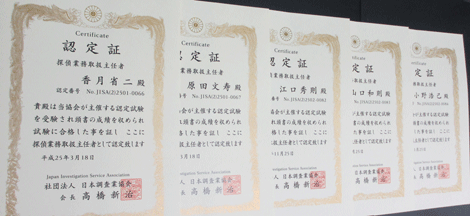 Certificate
認定証
探偵業務取扱主任者
香月省二殿
認定番号 No.JISA(2)2503-0066
貴殿は当協会が主催する認定試験
を受験され頭書の成績を収められ
試験に合格した事を証し ここに
探偵業務取扱主任者として認定致します
平成25年3月18日
Japan Investigation Service Association
社団法人 日本調査業協会
会長 高橋新治
Certificate
認定証
業務取扱主任者
原田文寿殿
No.JISA(2)2503-0067
が主催する認定試験
れ頭書の成績を収められ
した事を証し ここに
扱主任者として認定致します
3月18日
Investigation Service Association
人 日本調査業協会
高橋新治
Certificate
定証
務取扱主任者
江口秀剛殿
会が主催する認定試験
れ頭書の成績を収められ
した事を証し ここに
主任者として認定致します
日本調査業協会
高橋新治
Certificate
定証
取扱主任者
山口和則殿
が主催する認定試験
頭書の成績を収められ
た事を証し ここに
主任者として認定致します
日本調査業協会
高橋新治
Certificate
定証
取扱主任者
小野浩乙殿
が主催する認定試験
頭書の成績を収められ
た事を証し ここに
主任者として認定致します
日本調査業協会
高橋新治